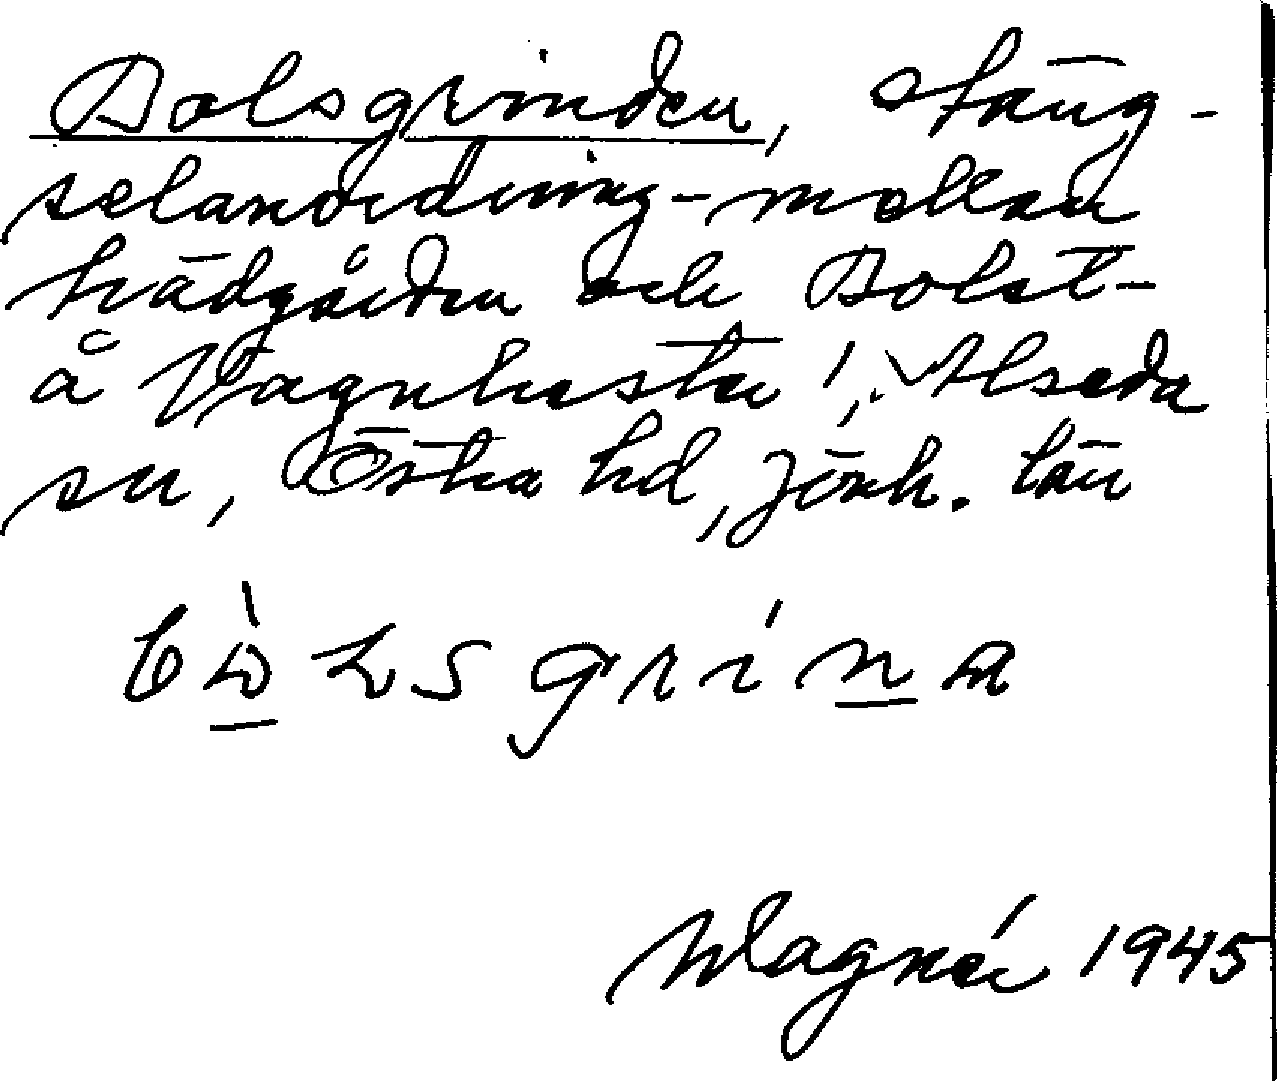 Bolsgrinden, stäng-
selanordning mellan
trädgården och Bolet -
å Vagnhester, Alseda
sn, Östra hd, Jönk. län
bòlsgrína
Wagnér 1945